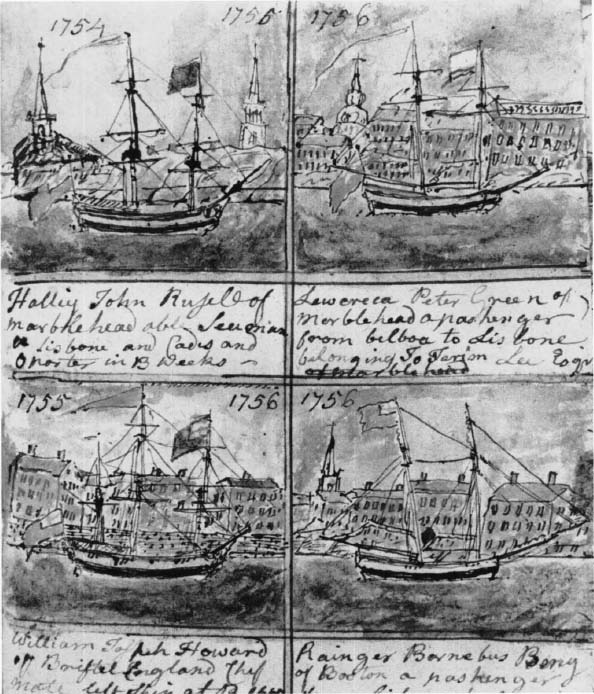 1754 1755
1756
Halliy John Rusele of
marblehead able Seeman
lisbone and Cades and
oporter in 13 Weeks
Lewcreca Peter Green of
Marblehead a pashenger
from bilboa to Lisbone
belonging To Jerem Lee Esqr
of Marblehead
1755 1756
1756
William Joseph Howard
of Bristel England Chef
mate left Ship at
Rainger Barnebus Beng
of Boston a pashenger